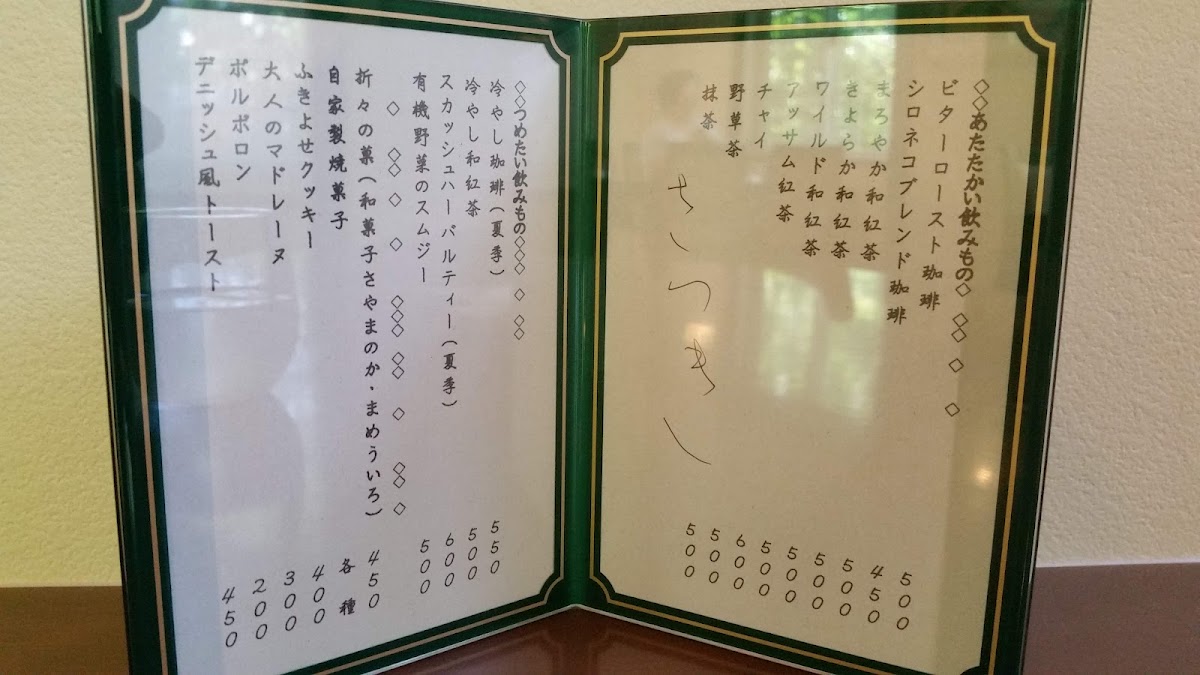 ◇◇あたたかい飲みもの◇ ◇◇ ◇ ◇
ビターロースト珈琲 500
シロネコブレンド珈琲 450
まろやか和紅茶 500
きよらか和紅茶 500
ワイルド和紅茶 500
アッサム紅茶 500
チャイ 600
野草茶 500
抹茶 500
◇◇つめたい飲みもの◇◇◇ ◇ ◇◇
冷やし珈琲（夏季） 550
冷やし和紅茶 500
スカッシュハーバルティー（夏季） 600
有機野菜のスムジー 500
◇ ◇◇ ◇ ◇ ◇◇◇ ◇◇ ◇ ◇◇ ◇
折々の菓（和菓子さやまのか・まめういろ） 450
自家製焼菓子 各種
ふきよせクッキー 400
大人のマドレーヌ 300
ポルポロン 200
デニッシュ風トースト 450